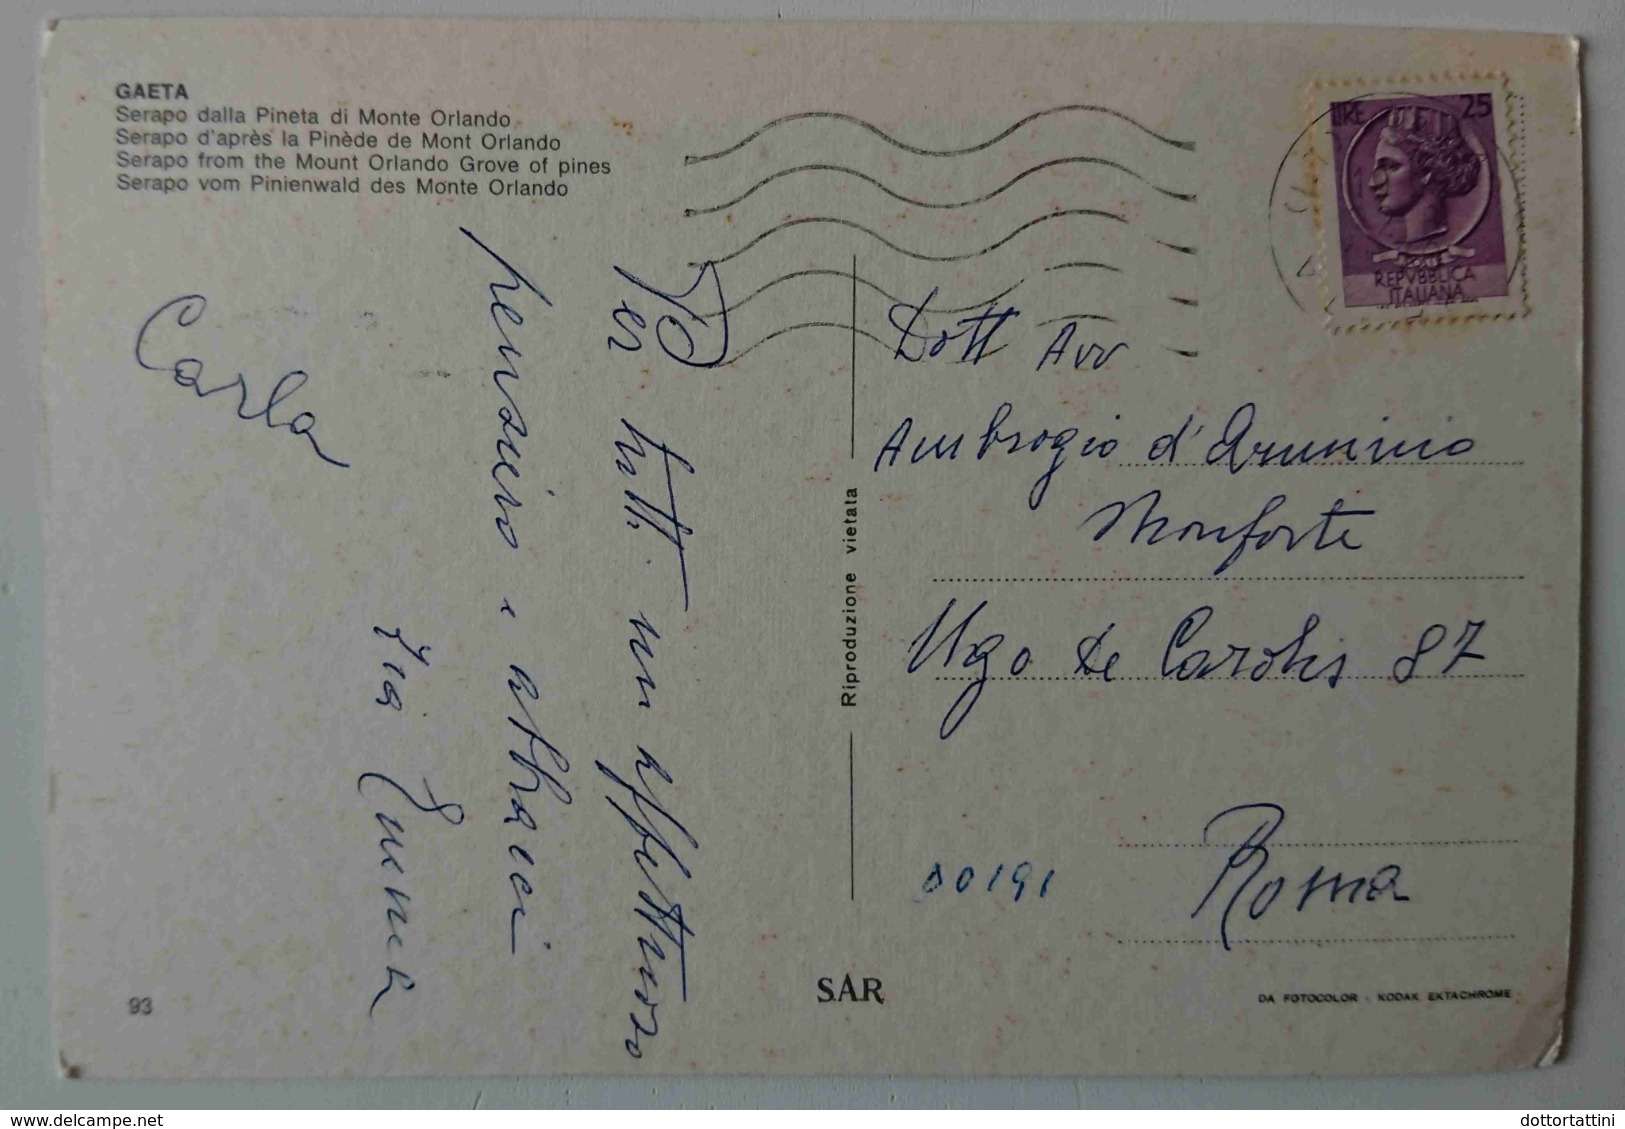 GAETA
Serapo dalla Pineta di Monte Orlando
Serapo d'après la Pinède de Mont Orlando
Serapo from the Mount Orlando Grove of pines
Serapo vom Pinienwald des Monte Orlando
LIRE 25
POSTE
REPVBBLICA
ITALIANA
Per tutti un affettuoso
pensiero e abbracci
Zia Emma
Carla
Dott Avv
Ambrogio d'Arminio
Monforte
Ugo De Carolis 87
00191
Roma
Riproduzione vietata
93
SAR
DA FOTOCOLOR - KODAK EKTACHROME
www.delcampe.net
dottortattini